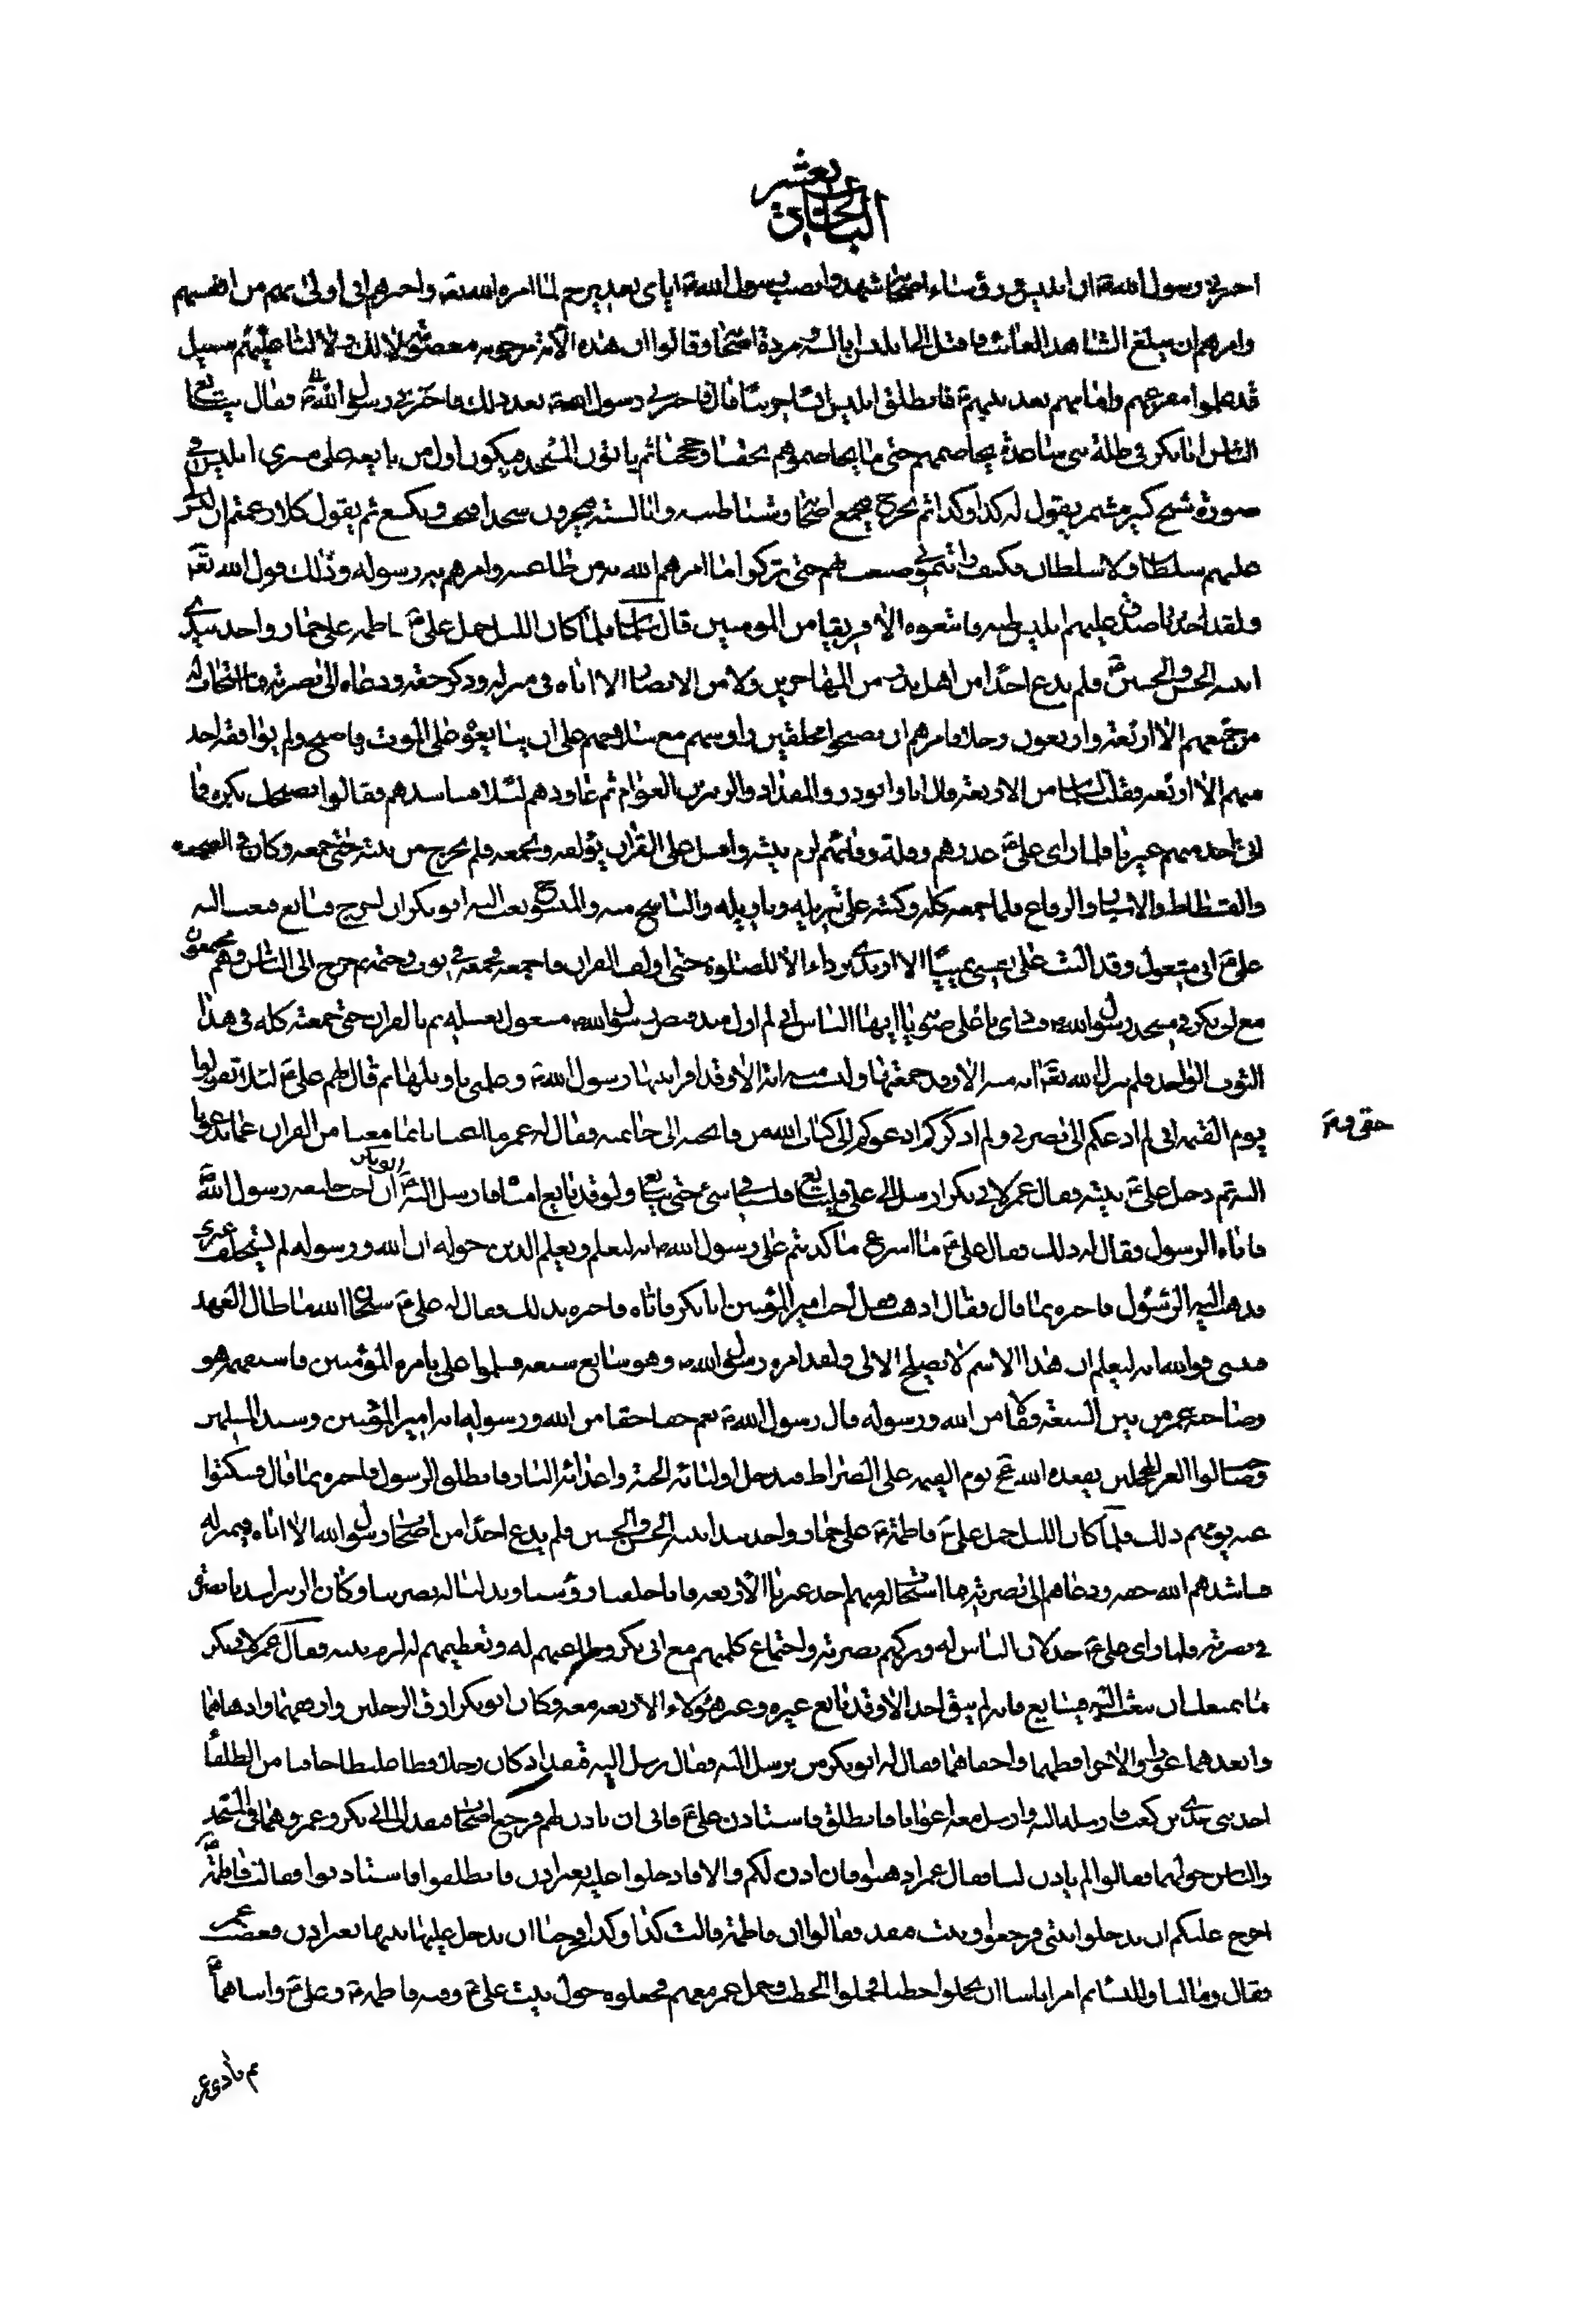 اخبرني رسول الله ص ان ابليس ورؤساء اصحابه شهدوا نصب رسول الله ص اياي بغدير خم لما امره الله تعه واخبرهم اني اولى بهم من انفسهم
وامرهم ان يبلغ الشاهد الغائب فاقبل الى ابليس ابالسة ومردة اصحابه وقالوا ان هذه الامة مرحومه معصومة لا لك ولا لنا عليهم سبيل
قد علموا مفزعهم وامامهم بعد نبيهم فانطلق ابليس ايسا حزينا قال فاخبرني رسول الله ص بعد ذلك فاخبرني رسول الله ص وقال يبايع
الناس ابا بكر في ظلة بني ساعدة بعد تخاصمهم بحقنا وحجتنا ثم ياتون المسجد فيكون اول من يبايعه على منبري ابليس في
صورة شيخ كبير مشمر يقول له كذا وكذا ثم يخرج فيجمع اصحابه وشياطينه وابالسته فيخرون سجدا فينخر ويكسع ثم يقول كلا زعمتم ان ليس لي
عليهم سلطان ولا سلطان فكيف رايتموني صنعت بهم حتى تركوا ما امرهم الله به من طاعته وامرهم به رسوله وذلك قول الله تعه
ولقد صدق عليهم ابليس ظنه فاتبعوه الا فريقا من المومنين قال سلمان فلما كان الليل حمل علي ع فاطمه على حمار واخذ بيدي
ابنيه الحسن والحسين ع فلم يدع احدا من اهل بدر من المهاجرين ولا من الانصار الا اتاه في منزله وذكر حقه ودعاه الى نصرته فما استجاب له
من جميعهم الا اربعة واربعون رجلا فامرهم ان يصبحوا محلقين راوسهم مع سلاحهم على ان يبايعوه على الموت فاصبح ولم يوافقه احد
منهم الا اربعه فقلت لسلمان من الاربعه قال انا وابو ذر والمقداد والزبير بن العوام ثم عاودهم ليلا فناشدهم فقالوا نصبحك بكرة فما
اتى احد منهم غيرنا فلما راى علي ع غدرهم وقلة وفائهم لزم بيته واقبل على القران يؤلفه ويجمعه فلم يخرج من بيته حتى جمعه وكان في الصحف
والشظاظ والاسيار والرقاع فلما جمعه كله وكتبه على تنزيله وتاويله والناسخ منه والمنسوخ بعث اليه ابو بكر ان اخرج فبايع فبعث اليه
علي ع اني مشغول وقد اليت على نفسي يمينا الا ارتدي برداء الا للصلوة حتى اولف القران واجمعه فجمعه في ثوب وختمه ثم خرج الى الناس وهم مجتمعون
مع ابي بكر في مسجد رسول الله ص فنادى باعلى صوته يا ايها الناس اني لم ازل منذ قبض رسول الله ص مشغول بغسله ثم بالقران حتى جمعته كله في هذا
الثوب الواحد فلم ينزل الله تعه ايه منه الا وقد جمعتها وليست منه ايه الا وقد اقرانيها رسول الله ص وعلمني تاويلها ثم قال لهم علي ع لئلا تقولوا
يوم القيمه اني لم ادعكم الى نصرتي ولم اذكركم حقي ولم ادعوكم الى كتاب الله من فاتحته الى خاتمته فقال له عمر ما اغنانا بما معنا من القران عما تدعونا
اليه ثم دخل علي ع بيته وقال عمر لابي بكر ارسل الى علي فليبايع فلسنا في شي حتى يبايع ولو قد بايع امناه فارسل اليه ابو بكر ان اجب خليفه رسول الله ص
فاتاه الرسول فقال له ذلك فقال علي ع ما اسرع ما كذبتم على رسول الله ص انه ليعلم ويعلم الذين حوله ان الله ورسوله لم يستخلف غيري
فذهب الرسول فاخبره بما قال فقال اذهب فقل اجب امير المؤمنين ابا بكر فاتاه فاخبره بذلك فقال له علي ع سبحان الله ما طال العهد
فينسى فوالله انه ليعلم ان هذا الاسم لا يصلح الا لي ولقد امره رسول الله ص وهو سابع سبعه فسلموا علي بامرة المؤمنين فاستفهمه هو
وصاحبه عمر من بين السبعه وقالا من الله ورسوله قال رسول الله ص نعم حقا حقا من الله ورسوله انه امير المؤمنين وسيد المسلمين
وصاحب لواء الغر المحجلين يقعده الله عج يوم القيمه على الصراط فيدخل اوليائه الجنة واعدائه النار فانطلق الرسول فاخبره بما قال فسكتوا
عنه يومهم ذلك فلما كان الليل حمل علي ع فاطمة ع على حمار واخذ بيد ابنيه الحسن والحسين فلم يدع احدا من اصحاب رسول الله الا اتاه في منزله
فناشدهم الله حقه ودعاهم الى نصرته فما استجاب له منهم احد غيرنا الاربعه فانا حلقنا رؤسنا وبذلنا له نصرتنا وكان الزبير اشدنا بصيرة
في نصرته فلما راى علي ع خذلان الناس له وتركهم نصرته واجتماع كلمتهم مع ابي بكر وطاعتهم له وتعظيمهم له لزم بيته وقال عمر لابي بكر
ما يمنعك ان تبعث اليه فيبايع فانه لم يبق احد الا وقد بايع غيره وغير هؤلاء الاربعه معه وكان ابو بكر ارق الرجلين وارفقهما وادهاهما
وابعدهما غورا والاخر افظهما واجفاهما فقال له ابو بكر من نرسل اليه فقال نرسل اليه قنفذا وكان رجلا فظا غليظا جافيا من الطلقاء
احد بني عدي بن كعب فارسله اليه وارسل معه اعوانا فانطلق فاستاذن علي ع فابى ان ياذن لهم فرجع اصحاب قنفذ الى ابي بكر وعمر وهما في المسجد
والناس حولهما فقالوا لم ياذن لنا فقال عمر اذهبوا فان اذن لكم والا فادخلوا عليه بغير اذن فانطلقوا فاستاذنوا فقالت فاطمة ع
احرج عليكم ان تدخلوا بيتي فرجعوا وثبت قنفذ فقالوا ان فاطمة قالت كذا وكذا فحرجنا ان ندخل عليها بيتها بغير اذن فغضب عمر
فقال وما لنا وللنساء ثم امر اناسا ان يحملوا حطبا فحملوا الحطب وحمل عمر معهم فجعلوه حول بيت علي ع وفيه فاطمة ع وعلي ع وابناهما ع
ثم نادى عمر